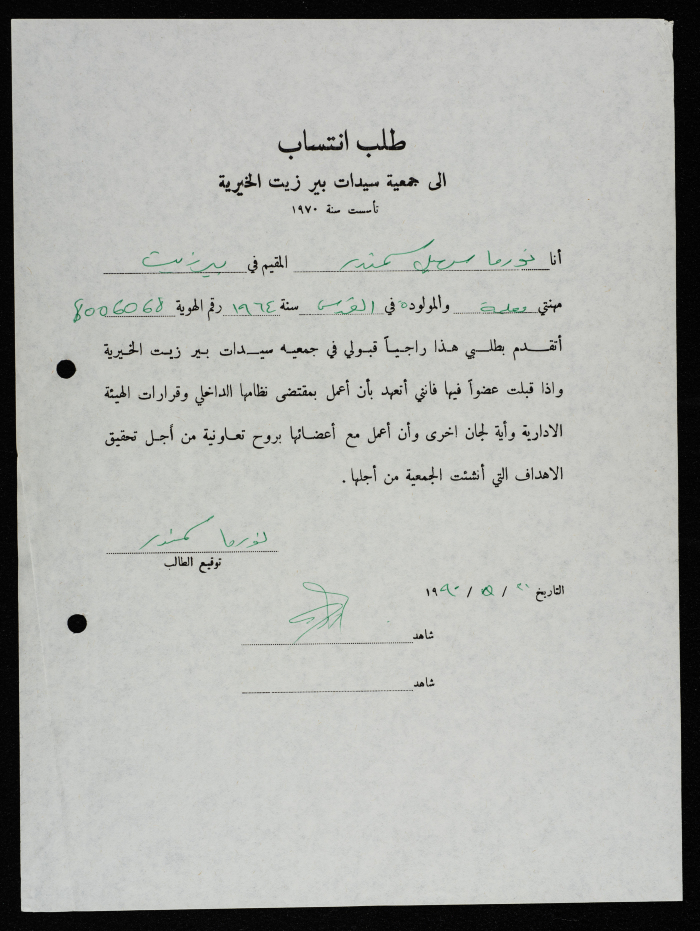 طلب انتساب
الى جمعية سيدات بير زيت الخيرية
تأسست سنة ١٩٧٠
أنا نورما سهيل سكندر المقيم في بيرزيت
مهنتي معلمة والمولودة في القدس سنة ١٩٦٤ رقم الهوية 8006068
أتقدم بطلبي هذا راجياً قبولي في جمعيه سيدات بير زيت الخيرية
واذا قبلت عضواً فيها فانني أتعهد بأن أعمل بمقتضى نظامها الداخلي وقرارات الهيئة
الادارية وأية لجان اخرى وأن أعمل مع أعضائها بروح تعاونية من أجل تحقيق
الاهداف التي أنشئت الجمعية من أجلها .
نورما سكندر
توقيع الطالب
التاريخ ٢٠ / ٥ / ١٩٩٠
شاهد
شاهد